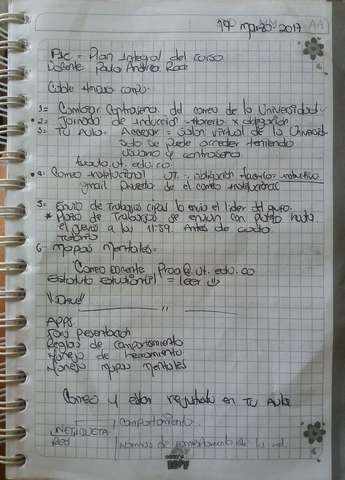 19 marzo 2017
PIC = Plan Integral del curso
Docente Paola Andrea Roa
1= Cambiar Contraseña del correo de la Universidad
2= Jornada de induccion - Horario x obligacion
3= Tu Aula= Accesar = salon virtual de la Universidad
solo se puede acceder teniendo
usuario y contraseña.
tuaula.ut.edu.co
4= Correo institucional UT.
gmail Privado de el correo institucional
5= Envio de trabajos cipal lo envia el lider del grupo.
* Plazo de Trabajos se envian con plazo hasta
el jueves a las 11:59. Antes de cada
6= Mapas Mentales=
Correo docente Proa@ut.edu.co
Estatuto Estudiantil = leer
APPS
Foro presentacion
Reglas de comportamiento
Manejo de herramienta
Manejo mapas mentales
Correo y estar registrado en Tu Aula
NETIQUETA comportamiento
RED Normas de comportamiento de la red